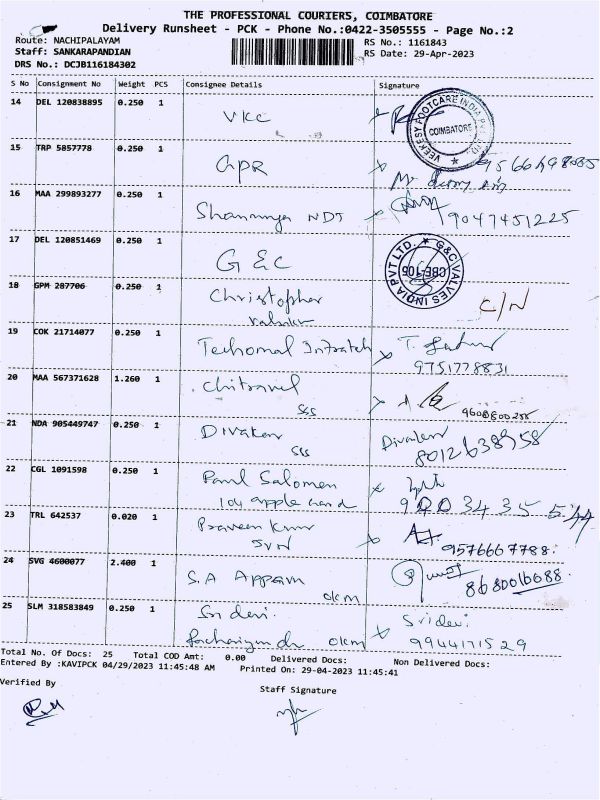 THE PROFESSIONAL COURIERS, COIMBATORE
Delivery Runsheet - PCK - Phone No.:0422-3505555 - Page No.:2
Route: NACHIPALAYAM RS No.: 1161843
Staff: SANKARAPANDIAN RS Date: 29-Apr-2023
DRS No.: DCJB116184302
S No Consignment No Weight PCS Consignee Details Signature
14 DEL 120838895 0.250 1 VKC
VEEKESY FOOTCARE INDIA PVT. LTD. COIMBATORE
15 TRP 5857778 0.250 1 GPR
16 MAA 299893277 0.250 1 Shanmuga NDJ 9047451225
17 DEL 120851469 0.250 1 G & C
G&C VALVES INDIA PVT LTD. CBE-105
18 GPM 287706 0.250 1 Christopher C/N
19 COK 21714077 0.250 1
9751778831
20 MAA 567371628 1.260 1 Chitravel
SSS 9600800255
21 NDA 905449747 0.250 1 Divakar Divakar
SSS 8012638958
22 CGL 1091598 0.250 1 Paul Salomen
104 apple 9003435544
23 TRL 642537 0.020 1 Praveen Kmr
SVN 9576667788
24 SVG 4600077 2.400 1 S.A Appam
okm 8680016688
25 SLM 318583849 0.250 1 Sri devi Sridevi
okm 9944171529
Total No. Of Docs: 25 Total COD Amt: 0.00 Delivered Docs: Non Delivered Docs:
Entered By :KAVIPCK 04/29/2023 11:45:48 AM Printed On: 29-04-2023 11:45:41
Verified By
Staff Signature